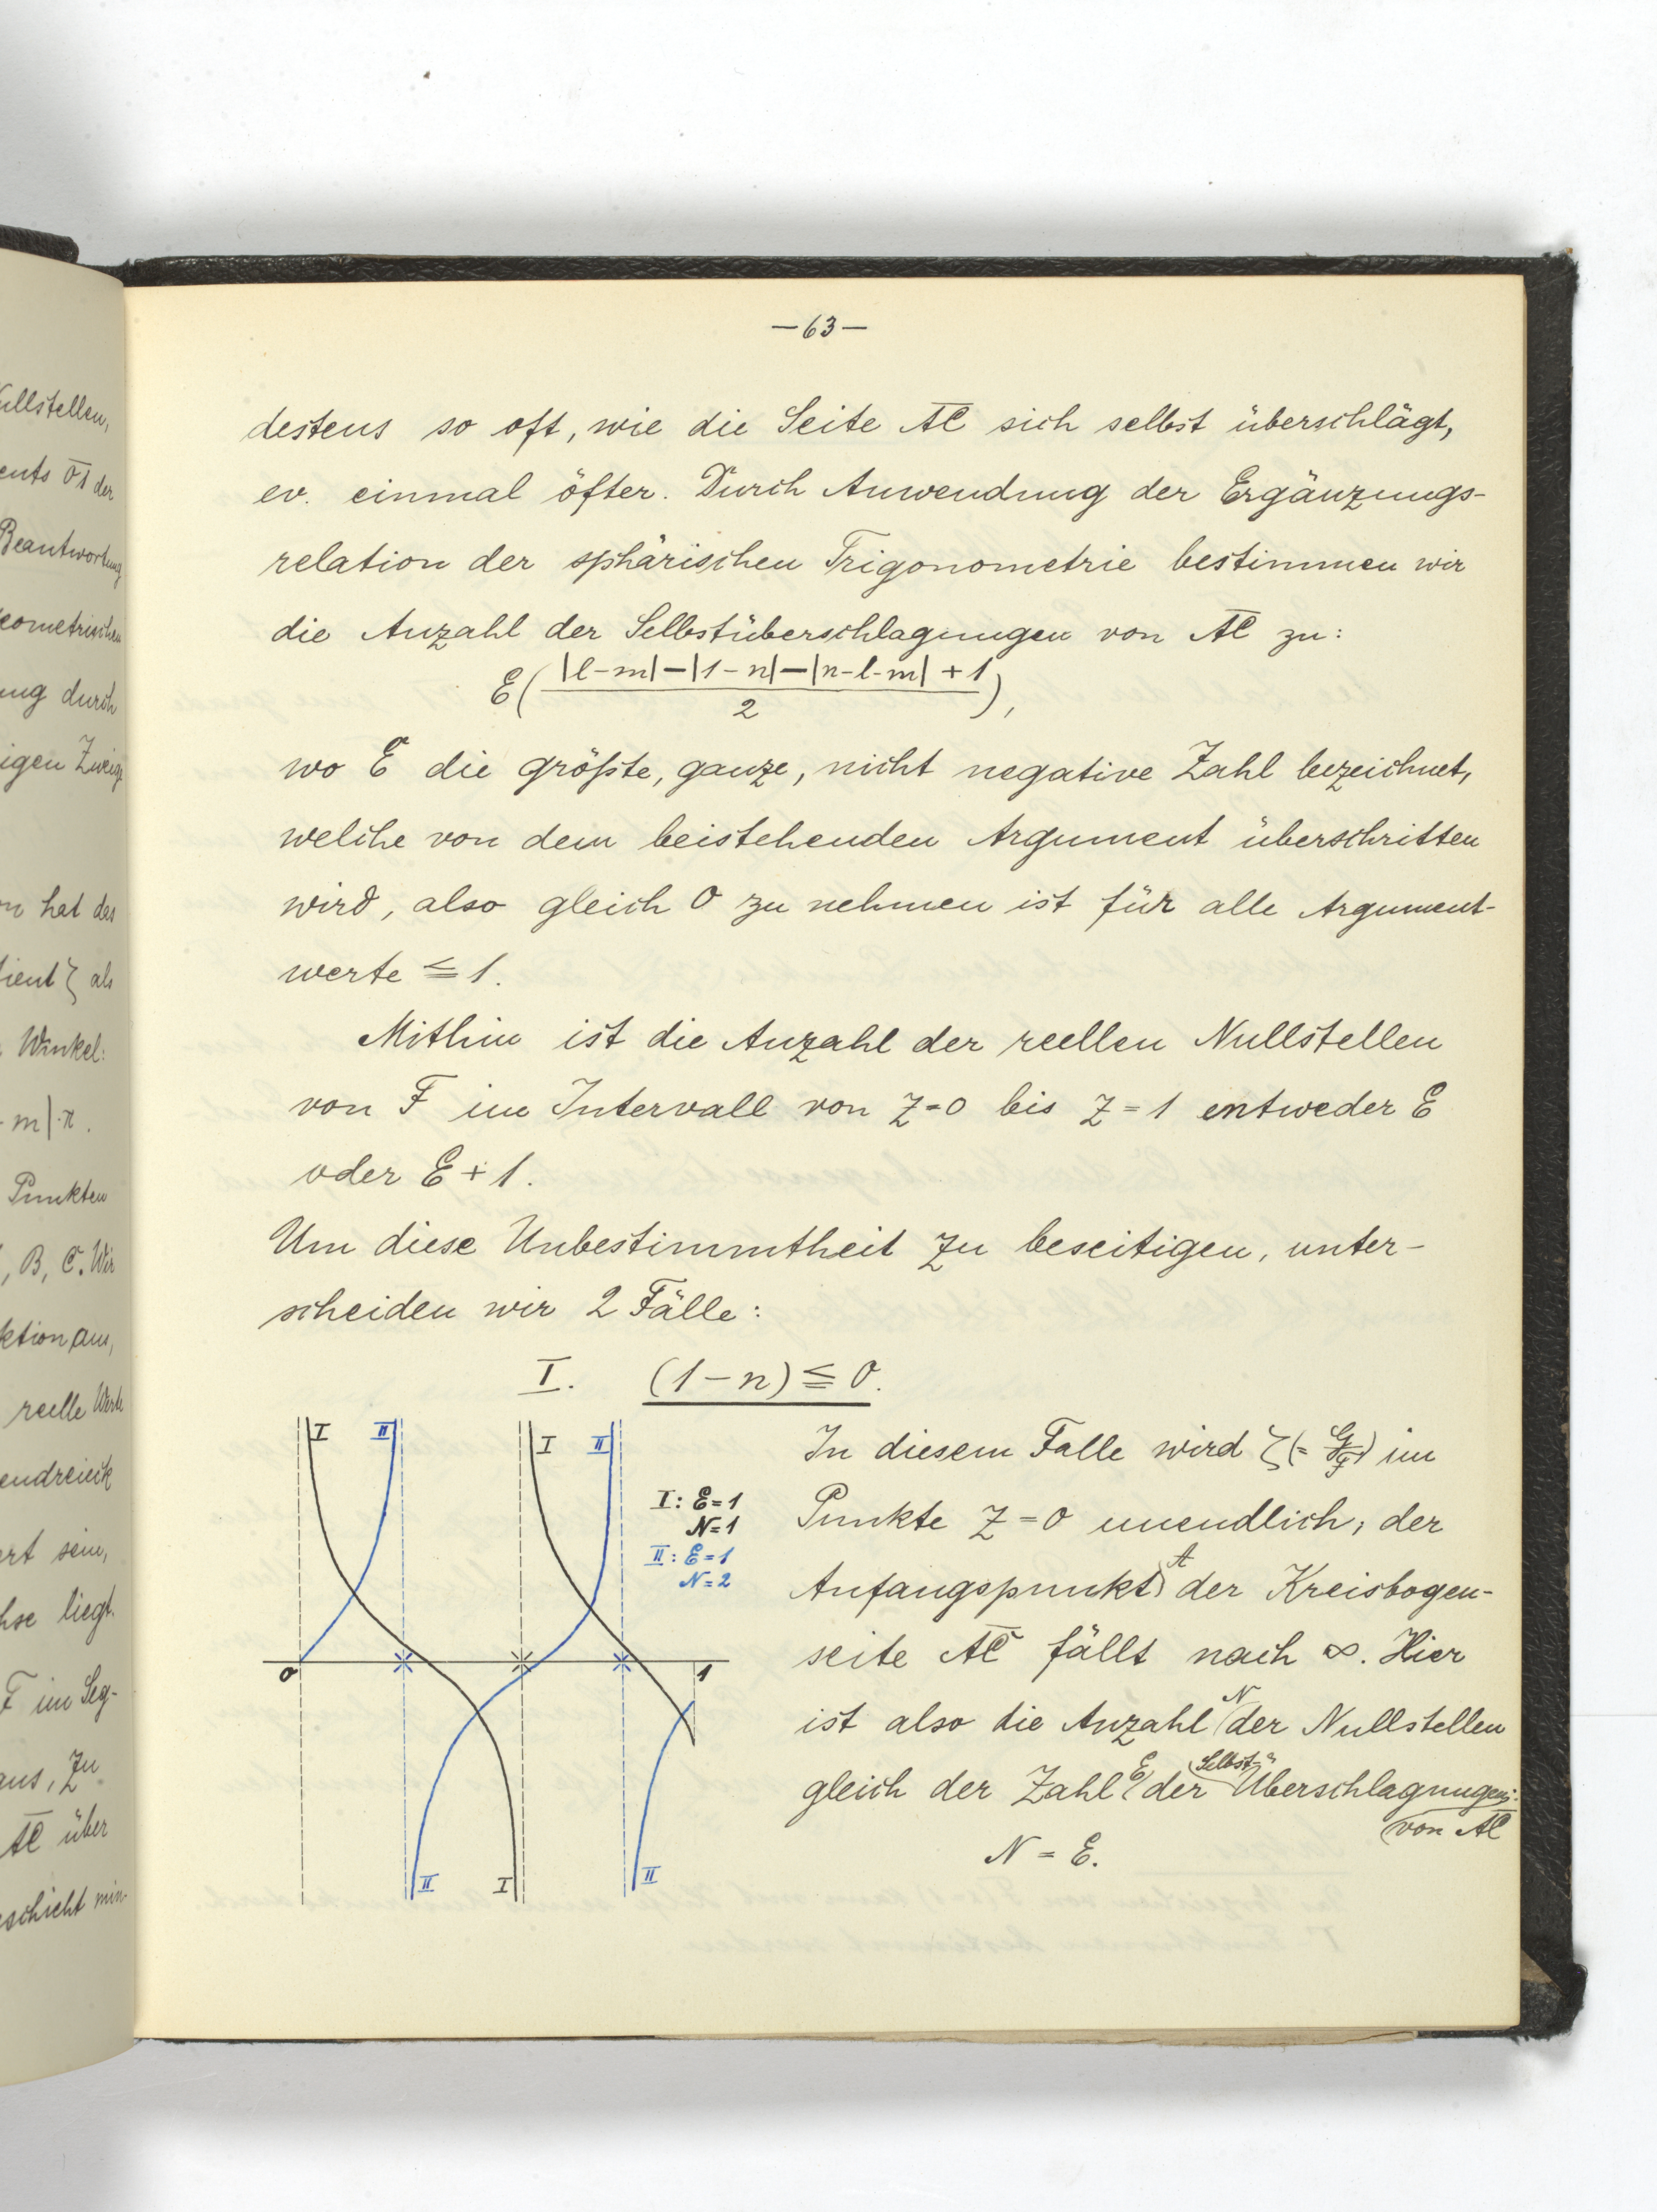 —63—
destens so oft, wie die Seite A̅C̅ sich selbst überschlägt,
ev. einmal öfter. Durch Anwendung der Ergänzungs-
relation der sphärischen Trigonometrie bestimmen wir
die Anzahl der Selbstüberschlagungen von A̅C̅ zu:
E(|l-m|-|1-n|-|n-l-m|+1
2),
wo E die größte, ganze, nicht negative Zahl bezeichnet,
welche von dem beistehenden Argument überschritten
wird, also gleich 0 zu nehmen ist für alle Argument-
werte ≦ 1.
Mithin ist die Anzahl der reellen Nullstellen
von F im Intervall von z=0 bis z=1 entweder E
oder E+1.
Um diese Unbestimmtheit zu beseitigen, unter-
scheiden wir 2 Fälle:
I. (1-n) ≦ 0.
I II I II
I: E=1
N=1
II: E=1
N=2
0 1
II I II
In diesem Falle wird ζ(= G/F) im
Punkte z=0 unendlich; der
Anfangspunkt A der Kreisbogen-
seite A̅C̅ fällt nach ∞. Hier
ist also die Anzahl N der Nullstellen
gleich der Zahl E der Selbst-Überschlagungen:
von A̅C̅
N = E.
ullstellen,
ents 0̅1̅ der
Beantwortung
eometrischen
ung durch
igen Zweige
on hat das
tient ζ als
Winkel:
-m|·π.
Punkten
, B, C. Wir
ktion aus,
reelle Werte
endreieck
ert sein,
hse liegt.
F im Seg-
aus, zu
A̅C̅ über
schieht min-